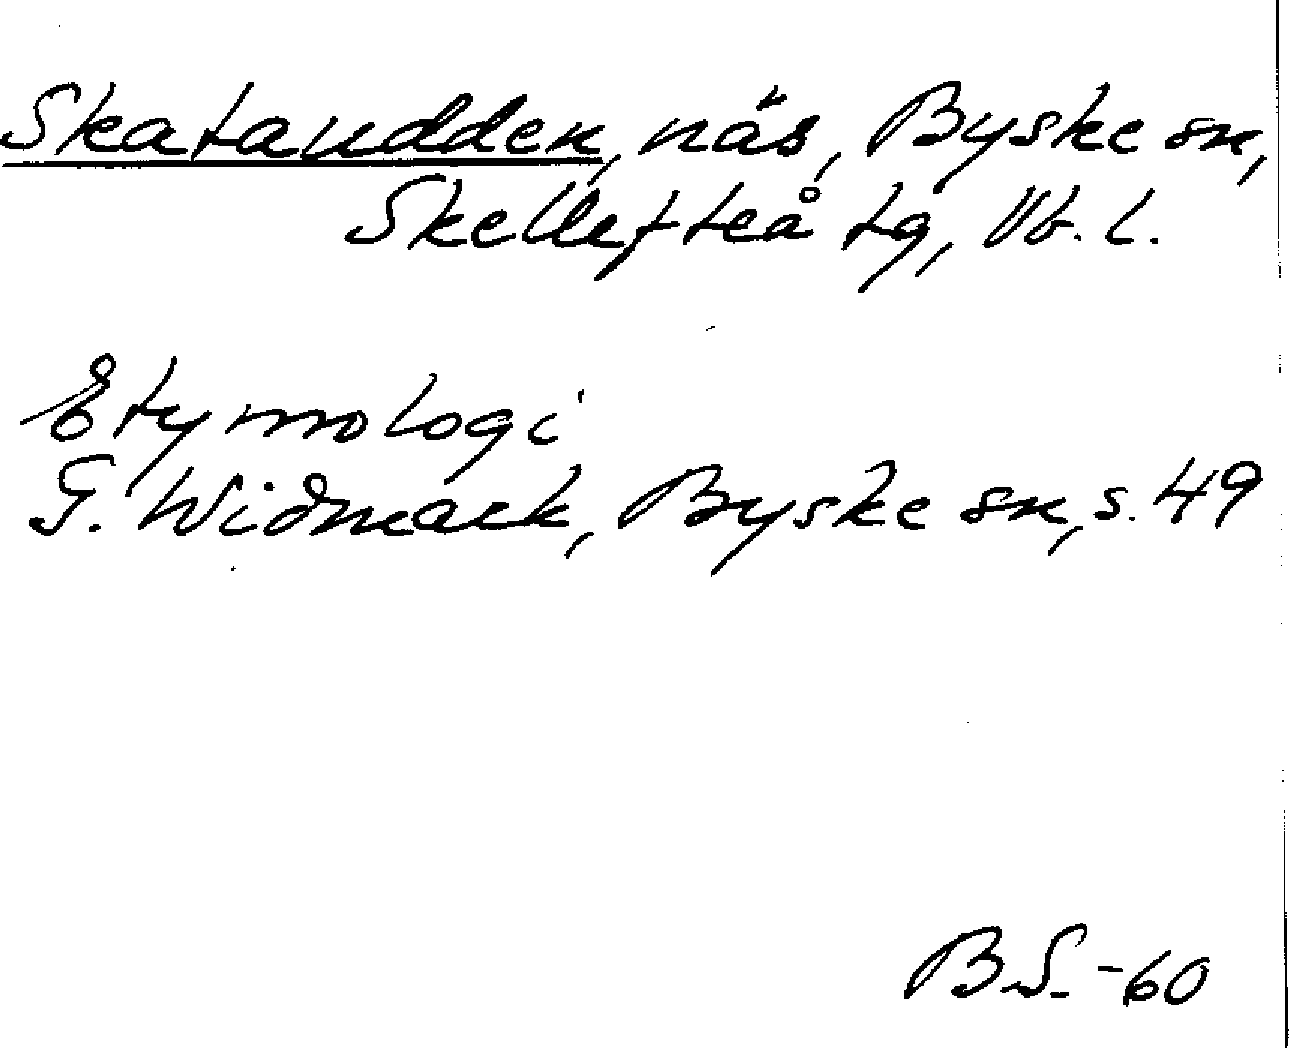 Skataudden, näs, Byske sn,
Skellefteå tg, Vb. l.
Etymologi
G. Widmark, Byske sn, s. 49
B.S. -60